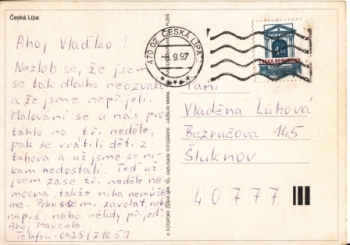 Česká Lípa
Ahoj Vlaďko!
Nezlob se, že jsem
se tak dlouho neozvala
a že jsme nepřijeli.
Malování se u nás pro-
táhlo na tři neděle,
pak se vrátili děti z
tábora a už jsme se ni-
kam nedostali. Teď už
jsem zase tři neděle ne-
mocna, takže nikam nemůže-
me. Pokus se mi zavolat, nebo
napiš, nebo někdy přijeď.
Ahoj
Telefon - 0425/21057
470 02 ČESKÁ LÍPA
-8.9.97
ČESKÁ REPUBLIKA
Paní
Vladěna Lúhová
Bezručova 145
Šluknov
40777